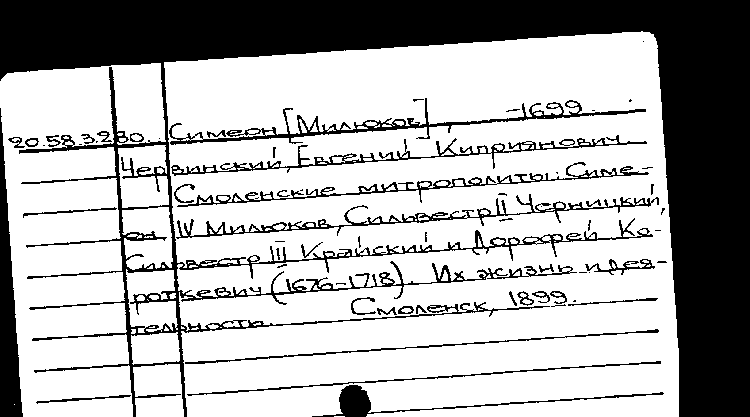 20.58.3.280. Симеон [Милюков], -1699.
Червинский, Евгений Киприянович.
Смоленские митрополиты: Симе-
он IV Милюков, Сильвестр II Черницкий,
Сильвестр III Крайский и Дорофей Ко-
роткевич (1676-1718). Их жизнь и дея-
тельность. Смоленск, 1899.